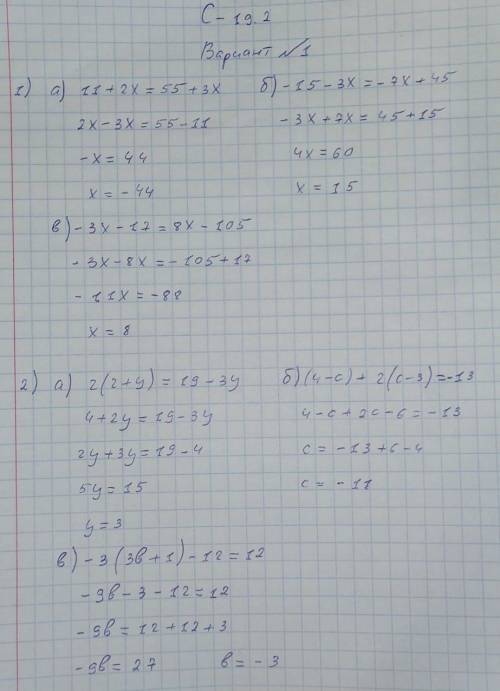 С - 19.2
Вариант №1
1) а) 11 + 2x = 55 + 3x
2x - 3x = 55 - 11
- x = 44
x = - 44
б) - 15 - 3x = - 7x + 45
- 3x + 7x = 45 + 15
4x = 60
x = 15
в) - 3x - 17 = 8x - 105
- 3x - 8x = - 105 + 17
- 11x = - 88
x = 8
2) а) 2(2 + y) = 19 - 3y
4 + 2y = 19 - 3y
2y + 3y = 19 - 4
5y = 15
y = 3
б) (4 - c) + 2(c - 3) = -13
4 - c + 2c - 6 = - 13
c = - 13 + 6 - 4
c = - 11
в) - 3(3b + 1) - 12 = 12
- 9b - 3 - 12 = 12
- 9b = 12 + 12 + 3
- 9b = 27 b = - 3